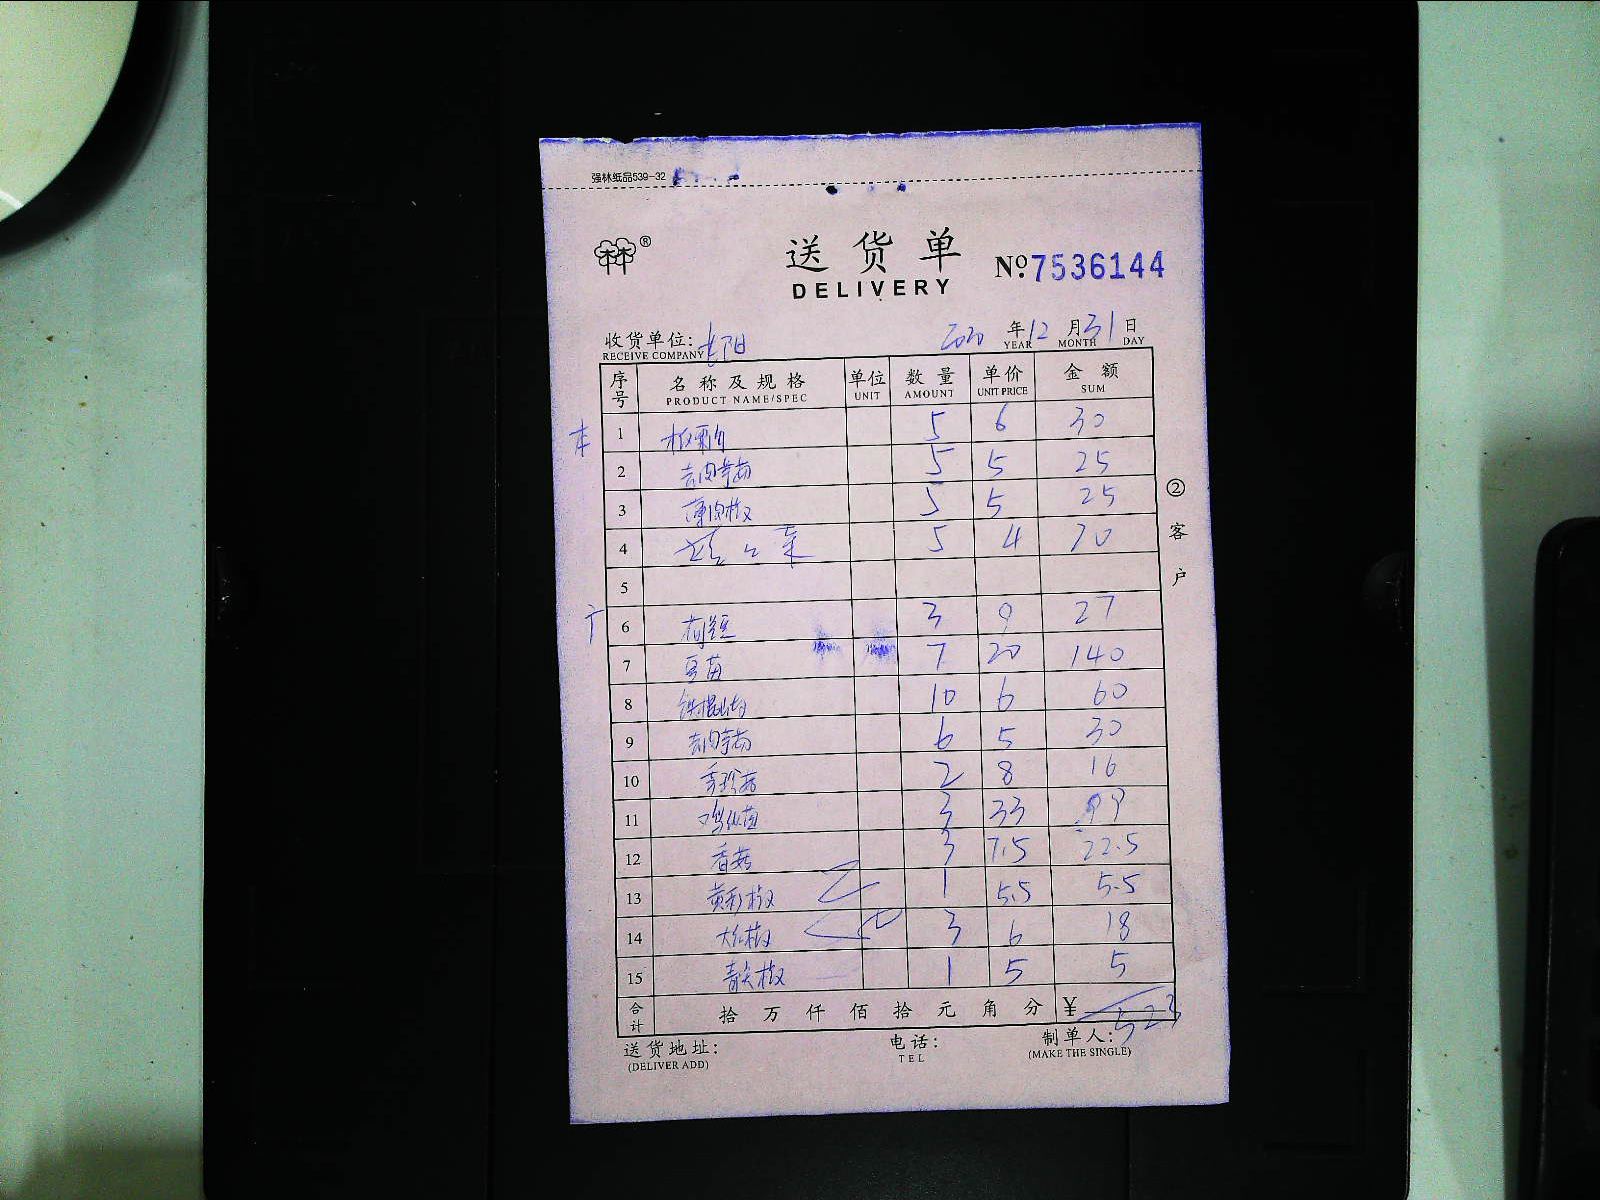 强林纸品539-32
林®
送货单
DELIVERY
Nº.7536144
收货单位: 2020 年 12 月 31 日
RECEIVE COMPANY YEAR MONTH DAY
序号 名称及规格 单位 数量 单价 金额
PRODUCT NAME/SPEC UNIT AMOUNT UNIT PRICE SUM
本 1 5 6 30
2 5 5 25
3 薄肉椒 5 5 25
4 菜 5 4 20
5
6 3 9 27
7 豆苗 7 20 140
8 铁棍山药 10 6 60
9 6 5 30
10 秀珍菇 2 8 16
11 3 33 99
12 香菇 3 7.5 22.5
13 黄彩椒 1 5.5 5.5
14 大红椒 3 6 18
15 青尖椒 1 5 5
合计 拾 万 仟 佰 拾 元 角 分 ¥ 523
送货地址: 电话: 制单人:
(DELIVER ADD) TEL (MAKE THE SINGLE)
②客户